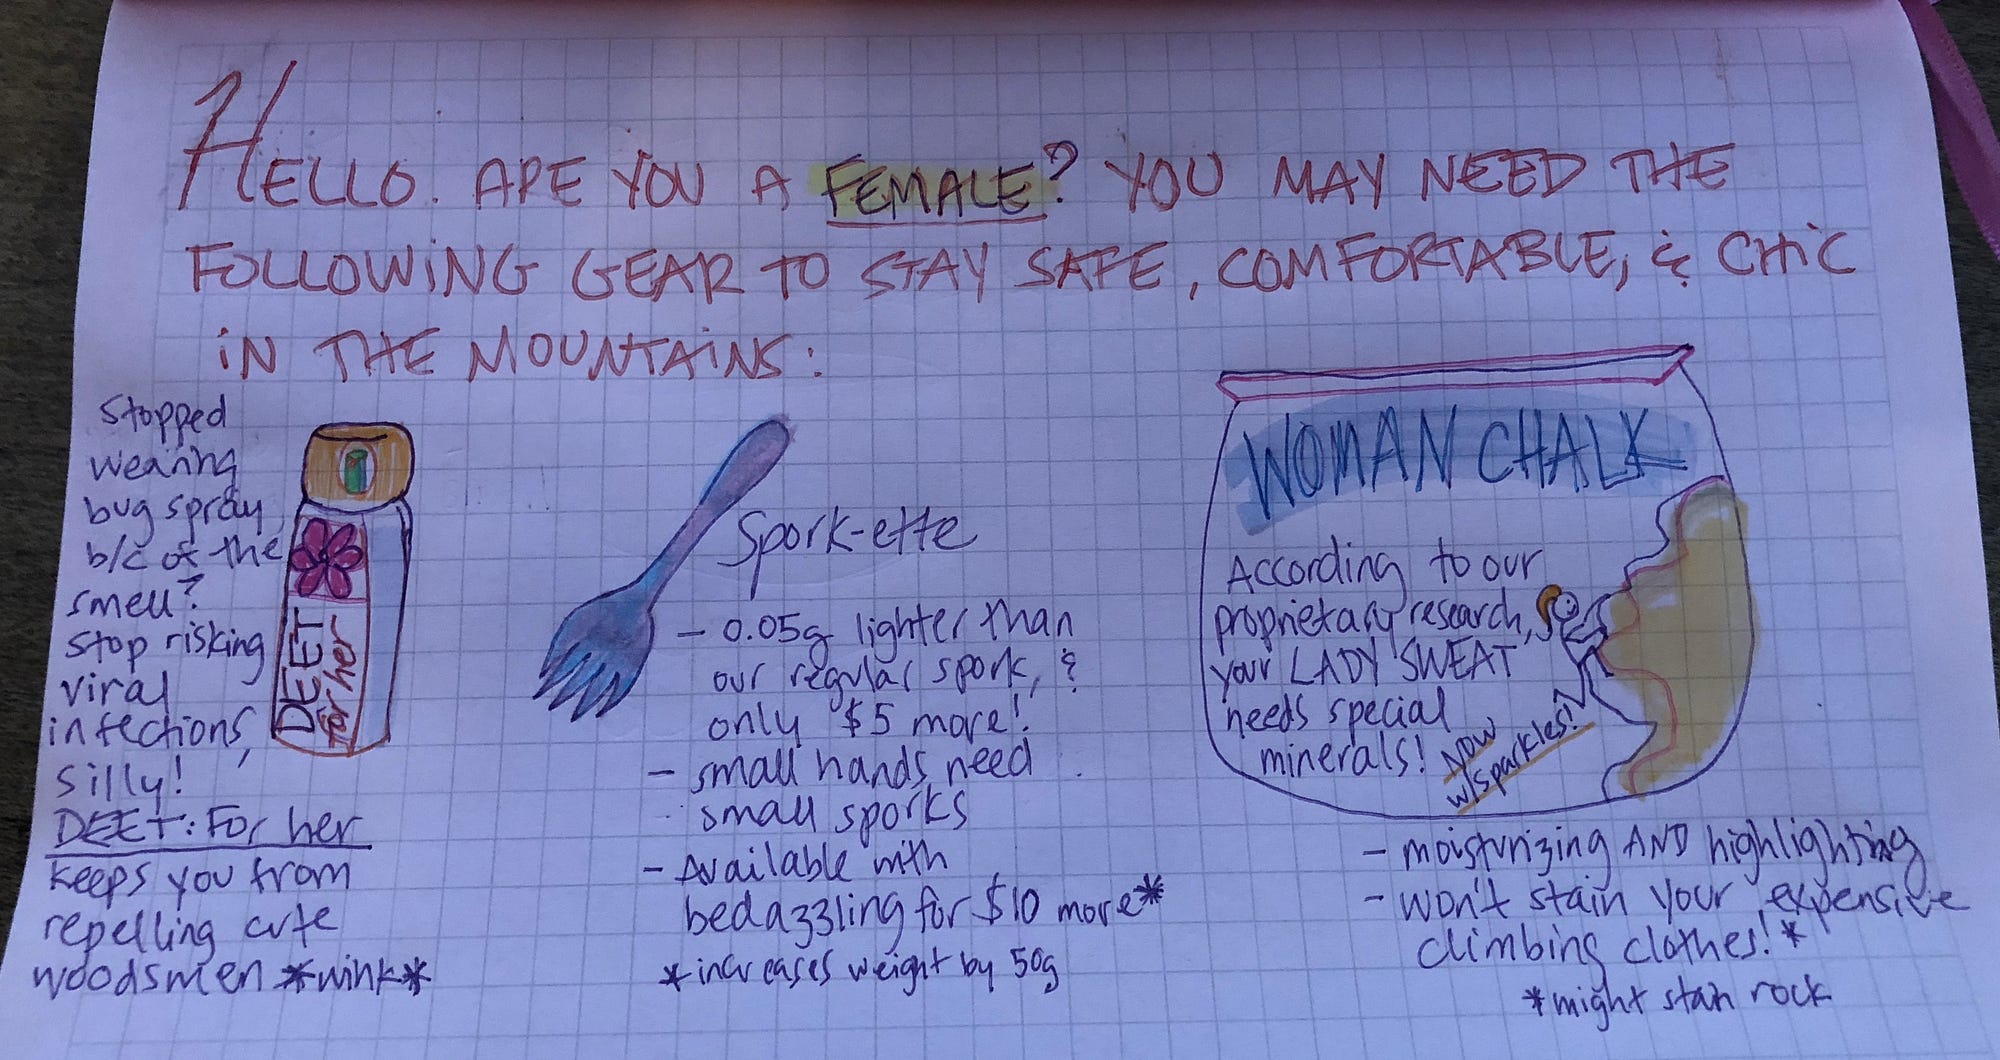 HELLO. ARE YOU A FEMALE? YOU MAY NEED THE
FOLLOWING GEAR TO STAY SAFE, COMFORTABLE, & CHIC
IN THE MOUNTAINS:
Stopped
wearing
bug spray
b/c of the
smell?
Stop risking
viral
infections,
silly!
DEET: For her
keeps you from
repelling cute
woodsmen *wink*
DEET
for her
Spork-ette
- 0.05g lighter than
our regular spork, &
only $5 more!
- small hands need
small sporks
- Available with
bedazzling for $10 more*
*increases weight by 50g
WOMAN CHALK
According to our
proprietary research,
your LADY SWEAT
needs special
minerals!
NOW
w/sparkles!
- moisturizing AND highlighting
- won't stain your expensive
climbing clothes!*
*might stain rock